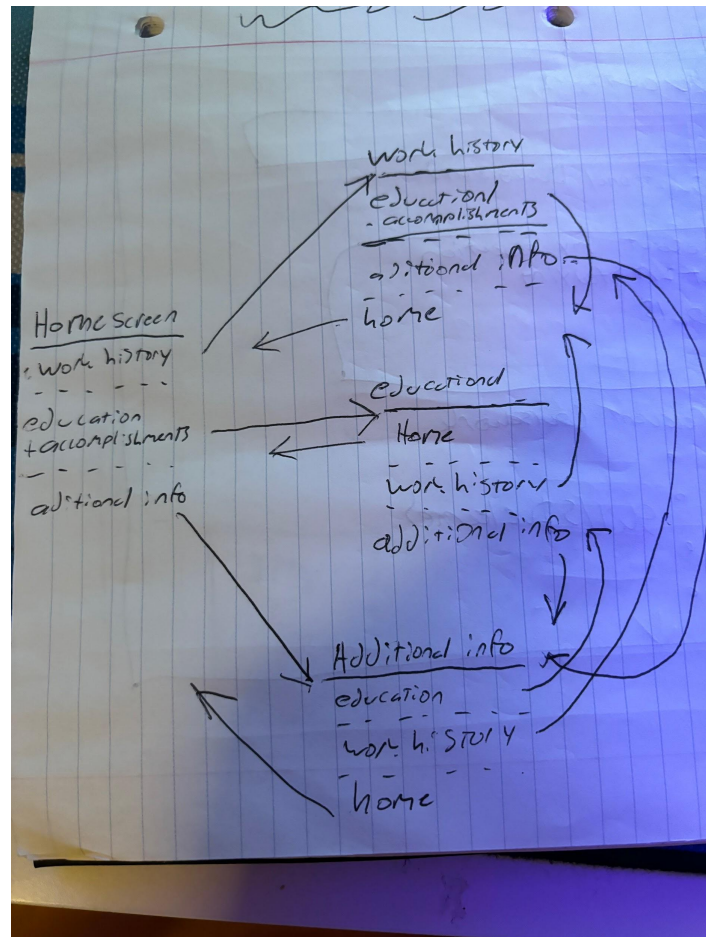 Home screen
work history
education
+ accomplishments
aditional info
work history
educational
accomplishments
aditional info
home
educational
Home
work history
additional info
Additional info
education
work history
home